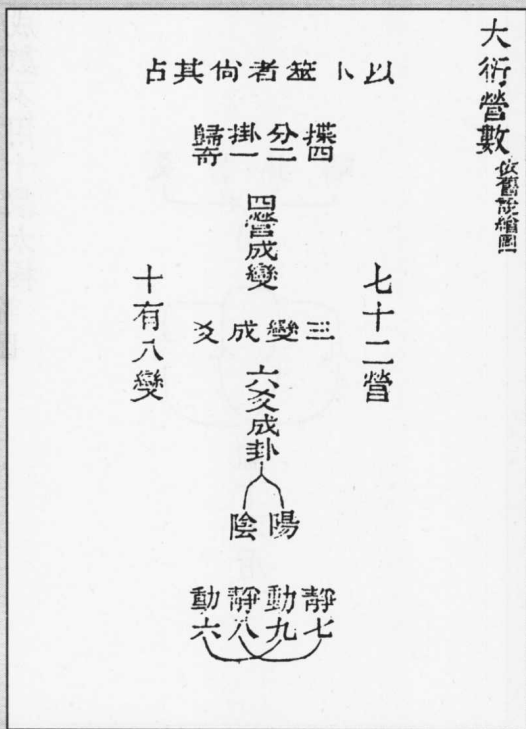 大衍營數 依舊說繪圖
以卜筮者尚其占
揲四 分二 掛一 歸奇
四營成變
三變成爻
七十二營
十有八變
六爻成卦
陽 陰
靜七 動九 靜八 動六